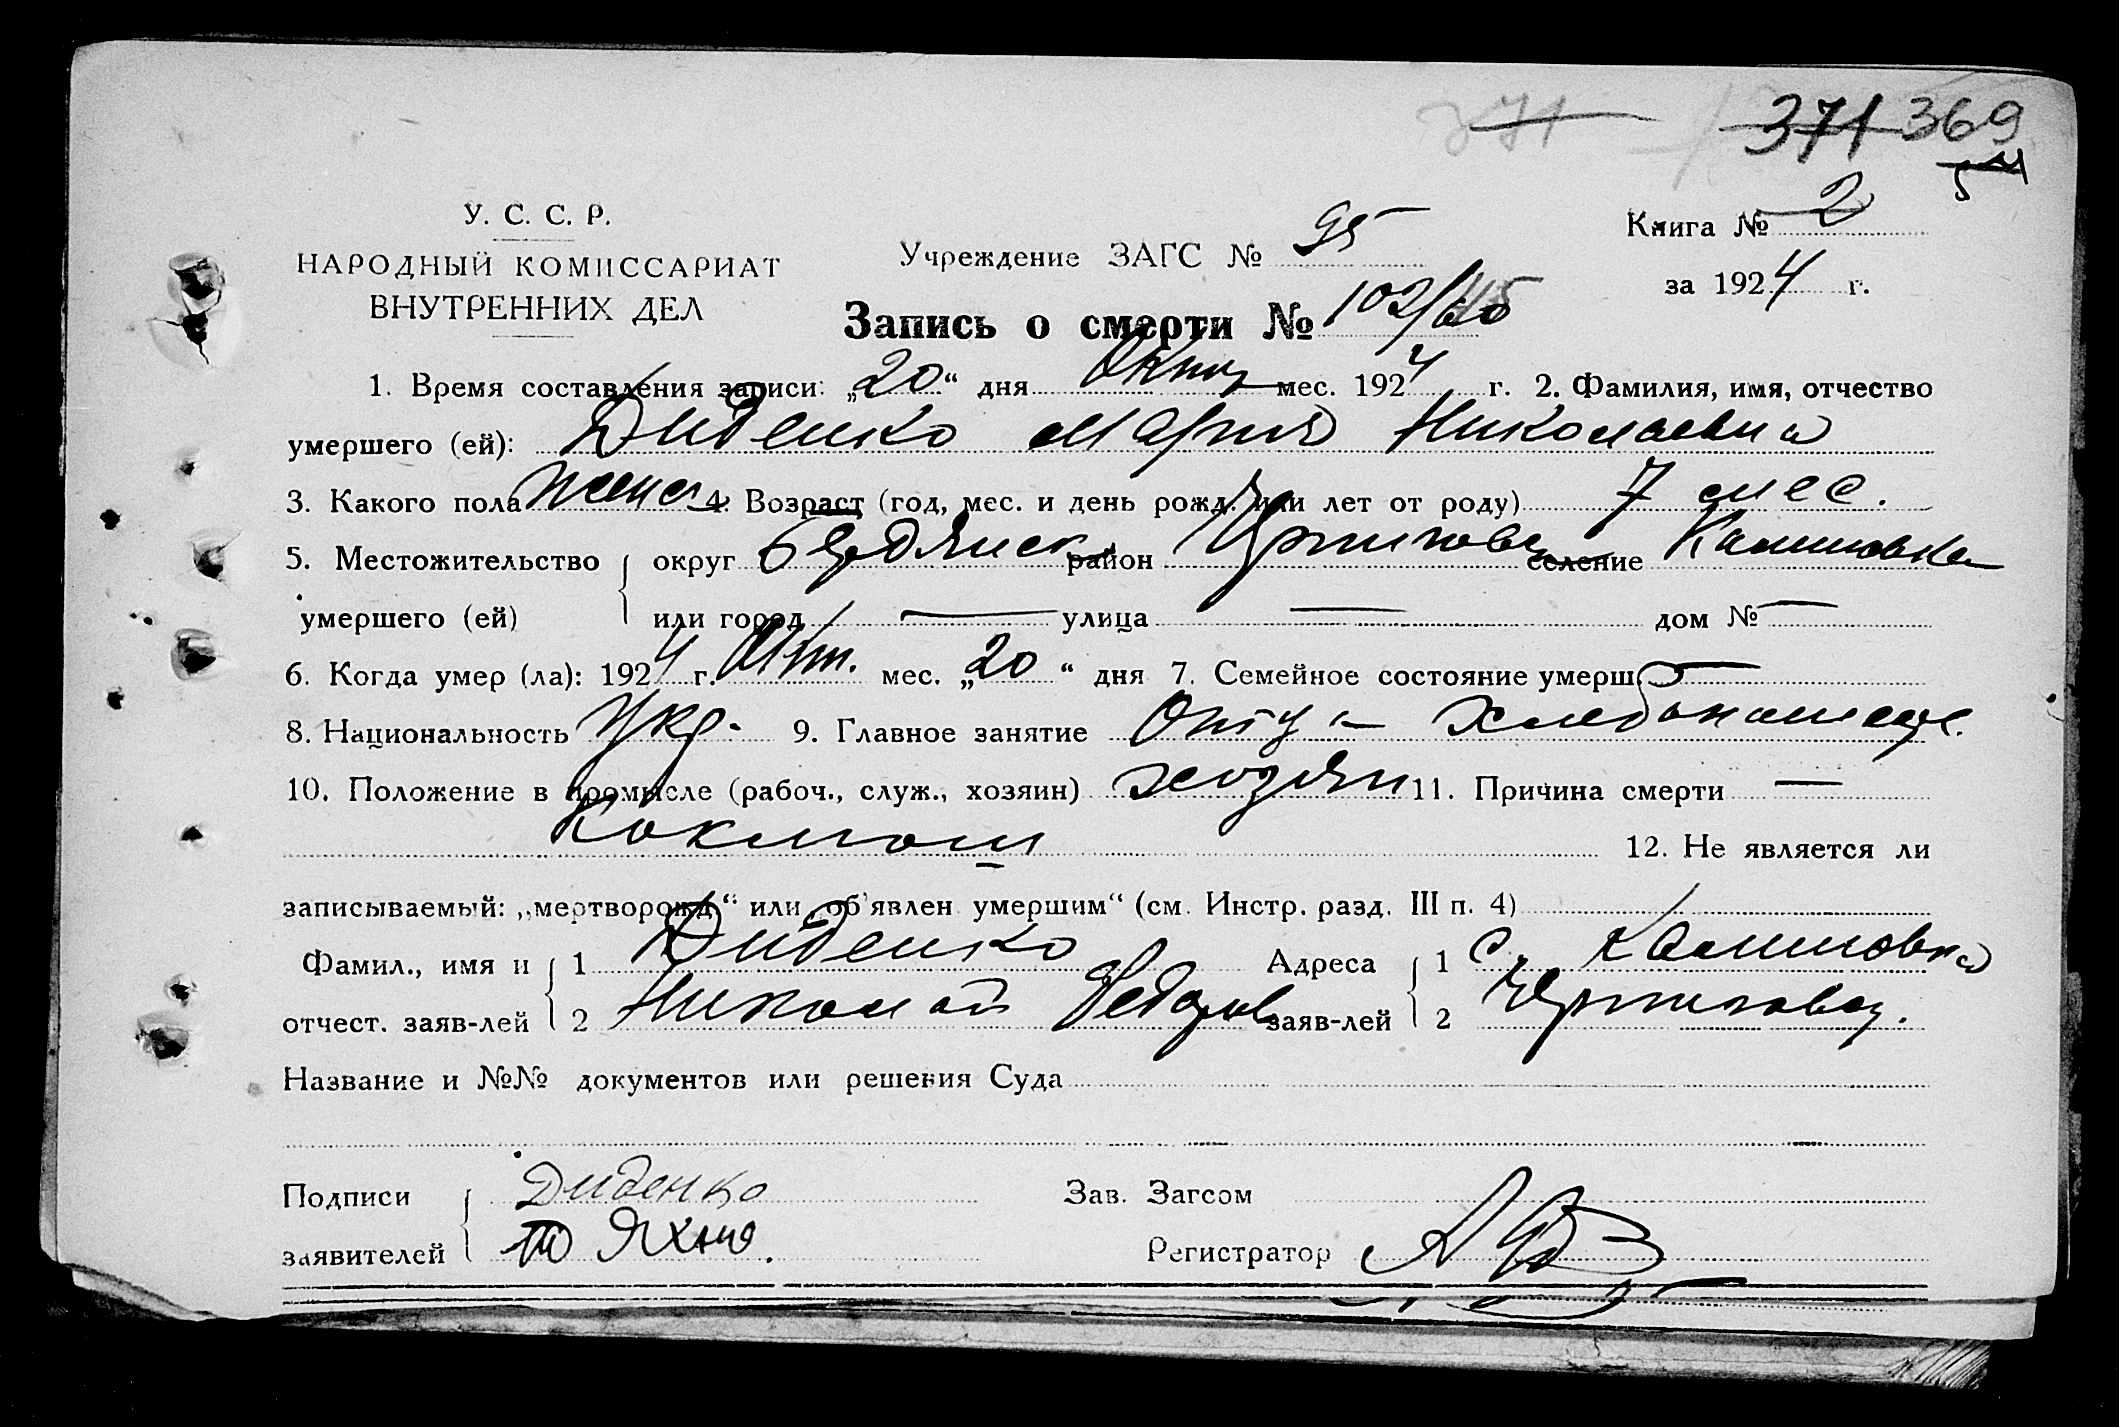 371 371 369
У. С. С. Р.
НАРОДНЫЙ КОМИССАРИАТ
ВНУТРЕННИХ ДЕЛ
Учреждение ЗАГС № 95
Книга № 2
за 1924 г.
Запись о смерти № 102/60
1. Время составления записи: „20“ дня Окт мес. 1924 г. 2. Фамилия, имя, отчество
умершего (ей): Диденко Мария Николаевна
3. Какого пола женс 4. Возраст (год, мес. и день рожд. или лет от роду) 7 мес.
5. Местожительство округ Бердянск район селение Калиновка
умершего (ей) или город — улица — дом № —
6. Когда умер (ла): 1924 г. Окт. мес. „20“ дня 7. Семейное состояние умерш. —
8. Национальность Укр. 9. Главное занятие Отца – Хлебопашец.
10. Положение в промысле (рабоч., служ., хозяин) хозяин 11. Причина смерти —
Коклюш 12. Не является ли
записываемый: „мертворожд.“ или „об'явлен умершим“ (см. Инстр. разд. III п. 4)
Фамил., имя и 1 Диденко Адреса 1 с. Калиновка
отчест. заяв-лей 2 Николай Федоров заяв-лей 2
Название и №№ документов или решения Суда
Подписи Диденко Зав. Загсом
заявителей Яхно. Регистратор